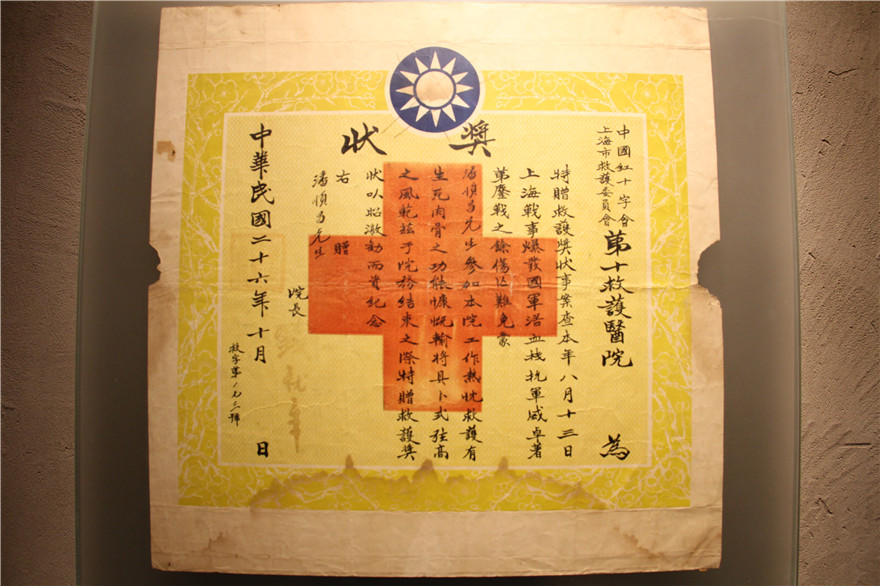 獎狀
中國紅十字會
上海市救護委員會
第十救護醫院 為
特贈救護獎狀事案查本年八月十三日
上海戰事爆發國軍浴血栈抗軍威卓著
第鏖戰之餘傷亡難免蒙
先生參加本院工作熱忱救護有
生死肉骨之功能慷慨輸將具卜式弦高
之風範茲于院務結束之際特贈救護獎
狀以昭激勸而資紀念
右 贈
先生
院長
中華民國二十六年十月 日
救字第
號